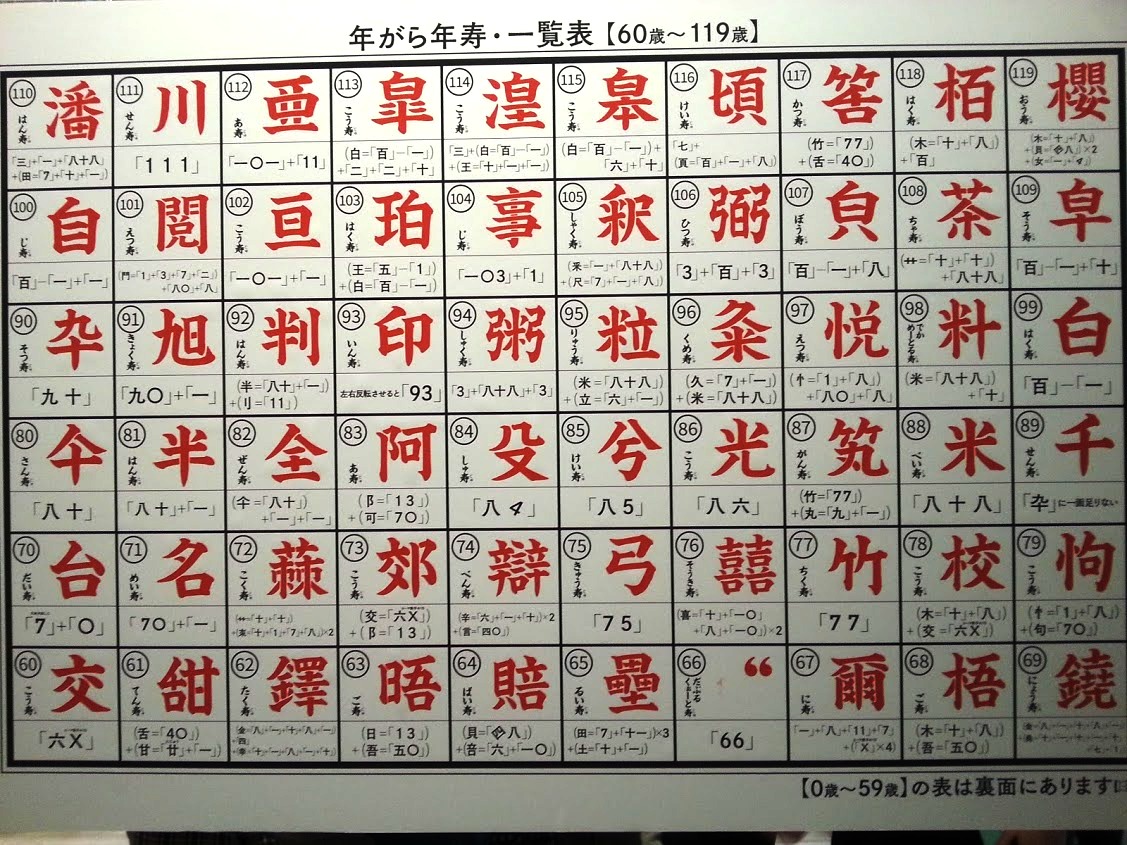 年がら年寿・一覧表【60歳～119歳】
110 潘 はん寿 「三」+「一」+「八十八」
+(田=「7」+「十」+「一」)
111 川 せん寿 「111」
112 亜 あ寿 「一〇一」+「11」
113 皐 こう寿 (白=「百」−「一」)
+「二」+「二」+「十」
114 湟 こう寿 「三」+(白=「百」−「一」)
+(王=「十」+「一」+「一」)
115 皋 こう寿 (白=「百」−「一」)+
「六」+「十」
116 頃 けい寿 「七」+
(頁=「百」+「一」+「八」)
117 筈 かつ寿 (竹=「77」)
+(舌=「40」)
118 栢 はく寿 (木=「十」+「八」)
+「百」
119 櫻 おう寿 (木=「十」+「八」)
+(女=「一」+「4」)
100 自 じ寿 「百」−「一」+「一」
101 閲 えつ寿 (門=「1」+「3」+「7」+「二」)
+「八〇」+「八」
102 亘 こう寿 「一〇一」+「一」
103 珀 はく寿 (王=「五」−「1」)
+(白=「百」−「一」)
104 事 じ寿 「一〇3」+「1」
105 釈 しゃく寿 (釆=「一」+「八十八」)
+(尺=「7」+「一」+「八」)
106 弼 ひつ寿 「3」+「百」+「3」
107 㒵 ぼう寿 「百」−「一」+「八」
108 茶 ちゃ寿 (艹=「十」+「十」)
+「八十八」
109 皁 そう寿 「百」−「一」+「十」
90 卆 そつ寿 「九十」
91 旭 きょく寿 「九〇」+「一」
92 判 はん寿 (半=「八十」+「一」)
+(刂=「11」)
93 印 いん寿 左右反転させると「93」
94 粥 しゅく寿 「3」+「八十八」+「3」
95 粒 りゅう寿 (米=「八十八」)
+(立=「六」+「一」)
96 粂 くめ寿 (久=「7」+「一」)
+(米=「八十八」)
97 悦 えつ寿 (忄=「1」+「八」)
+「八〇」+「八」
98 籵 でかめーとる寿 (米=「八十八」)
+「十」
99 白 はく寿 「百」−「一」
80 仐 さん寿 「八十」
81 半 はん寿 「八十」+「一」
82 全 ぜん寿 (仐=「八十」)
+「一」+「一」
83 阿 あ寿 (阝=「13」)
+(可=「70」)
84 殳 しゅ寿 「八4」
85 兮 けい寿 「八5」
86 光 こう寿 「八六」
87 笂 がん寿 (竹=「77」)
+(丸=「九」+「一」)
88 米 べい寿 「八十八」
89 千 せん寿 「卆」に一画足りない
70 台 だい寿 「7」+「〇」
71 名 めい寿 「70」+「一」
72 蕀 こく寿 (艹=「十」+「十」)
+(朿=「十」+「1」+「7」+「八」)×2
73 郊 こう寿 (交=「六X」)
+(阝=「13」)
74 辯 べん寿 (辛=「六」+「一」+「十」)×2
+(言=「四〇」)
75 弓 きゅう寿 「75」
76 囍 そうき寿 (喜=「十」+「一〇」
+「八」+「一〇」)×2
77 竹 ちく寿 「77」
78 校 こう寿 (木=「十」+「八」)
+(交=「六X」)
79 怐 こう寿 (忄=「1」+「八」)
+(句=「70」)
60 交 こう寿 「六X」
61 甜 てん寿 (舌=「40」)
+(甘=「廿」+「一」)
62 鐸 たく寿
63 晤 ご寿 (日=「13」)
+(吾=「五〇」)
64 賠 ばい寿
+(咅=「六」+「一〇」)
65 壘 るい寿 (田=「7」+「十一」)×3
+(土=「十」+「一」)
66 “ だぶるくぉーと寿 「66」
67 爾 に寿 「一」+「八」+「11」+「7」
+(「X」×4)
68 梧 ご寿 (木=「十」+「八」)
+(吾=「五〇」)
69 鐃 にょう寿
【0歳～59歳】の表は裏面にあります